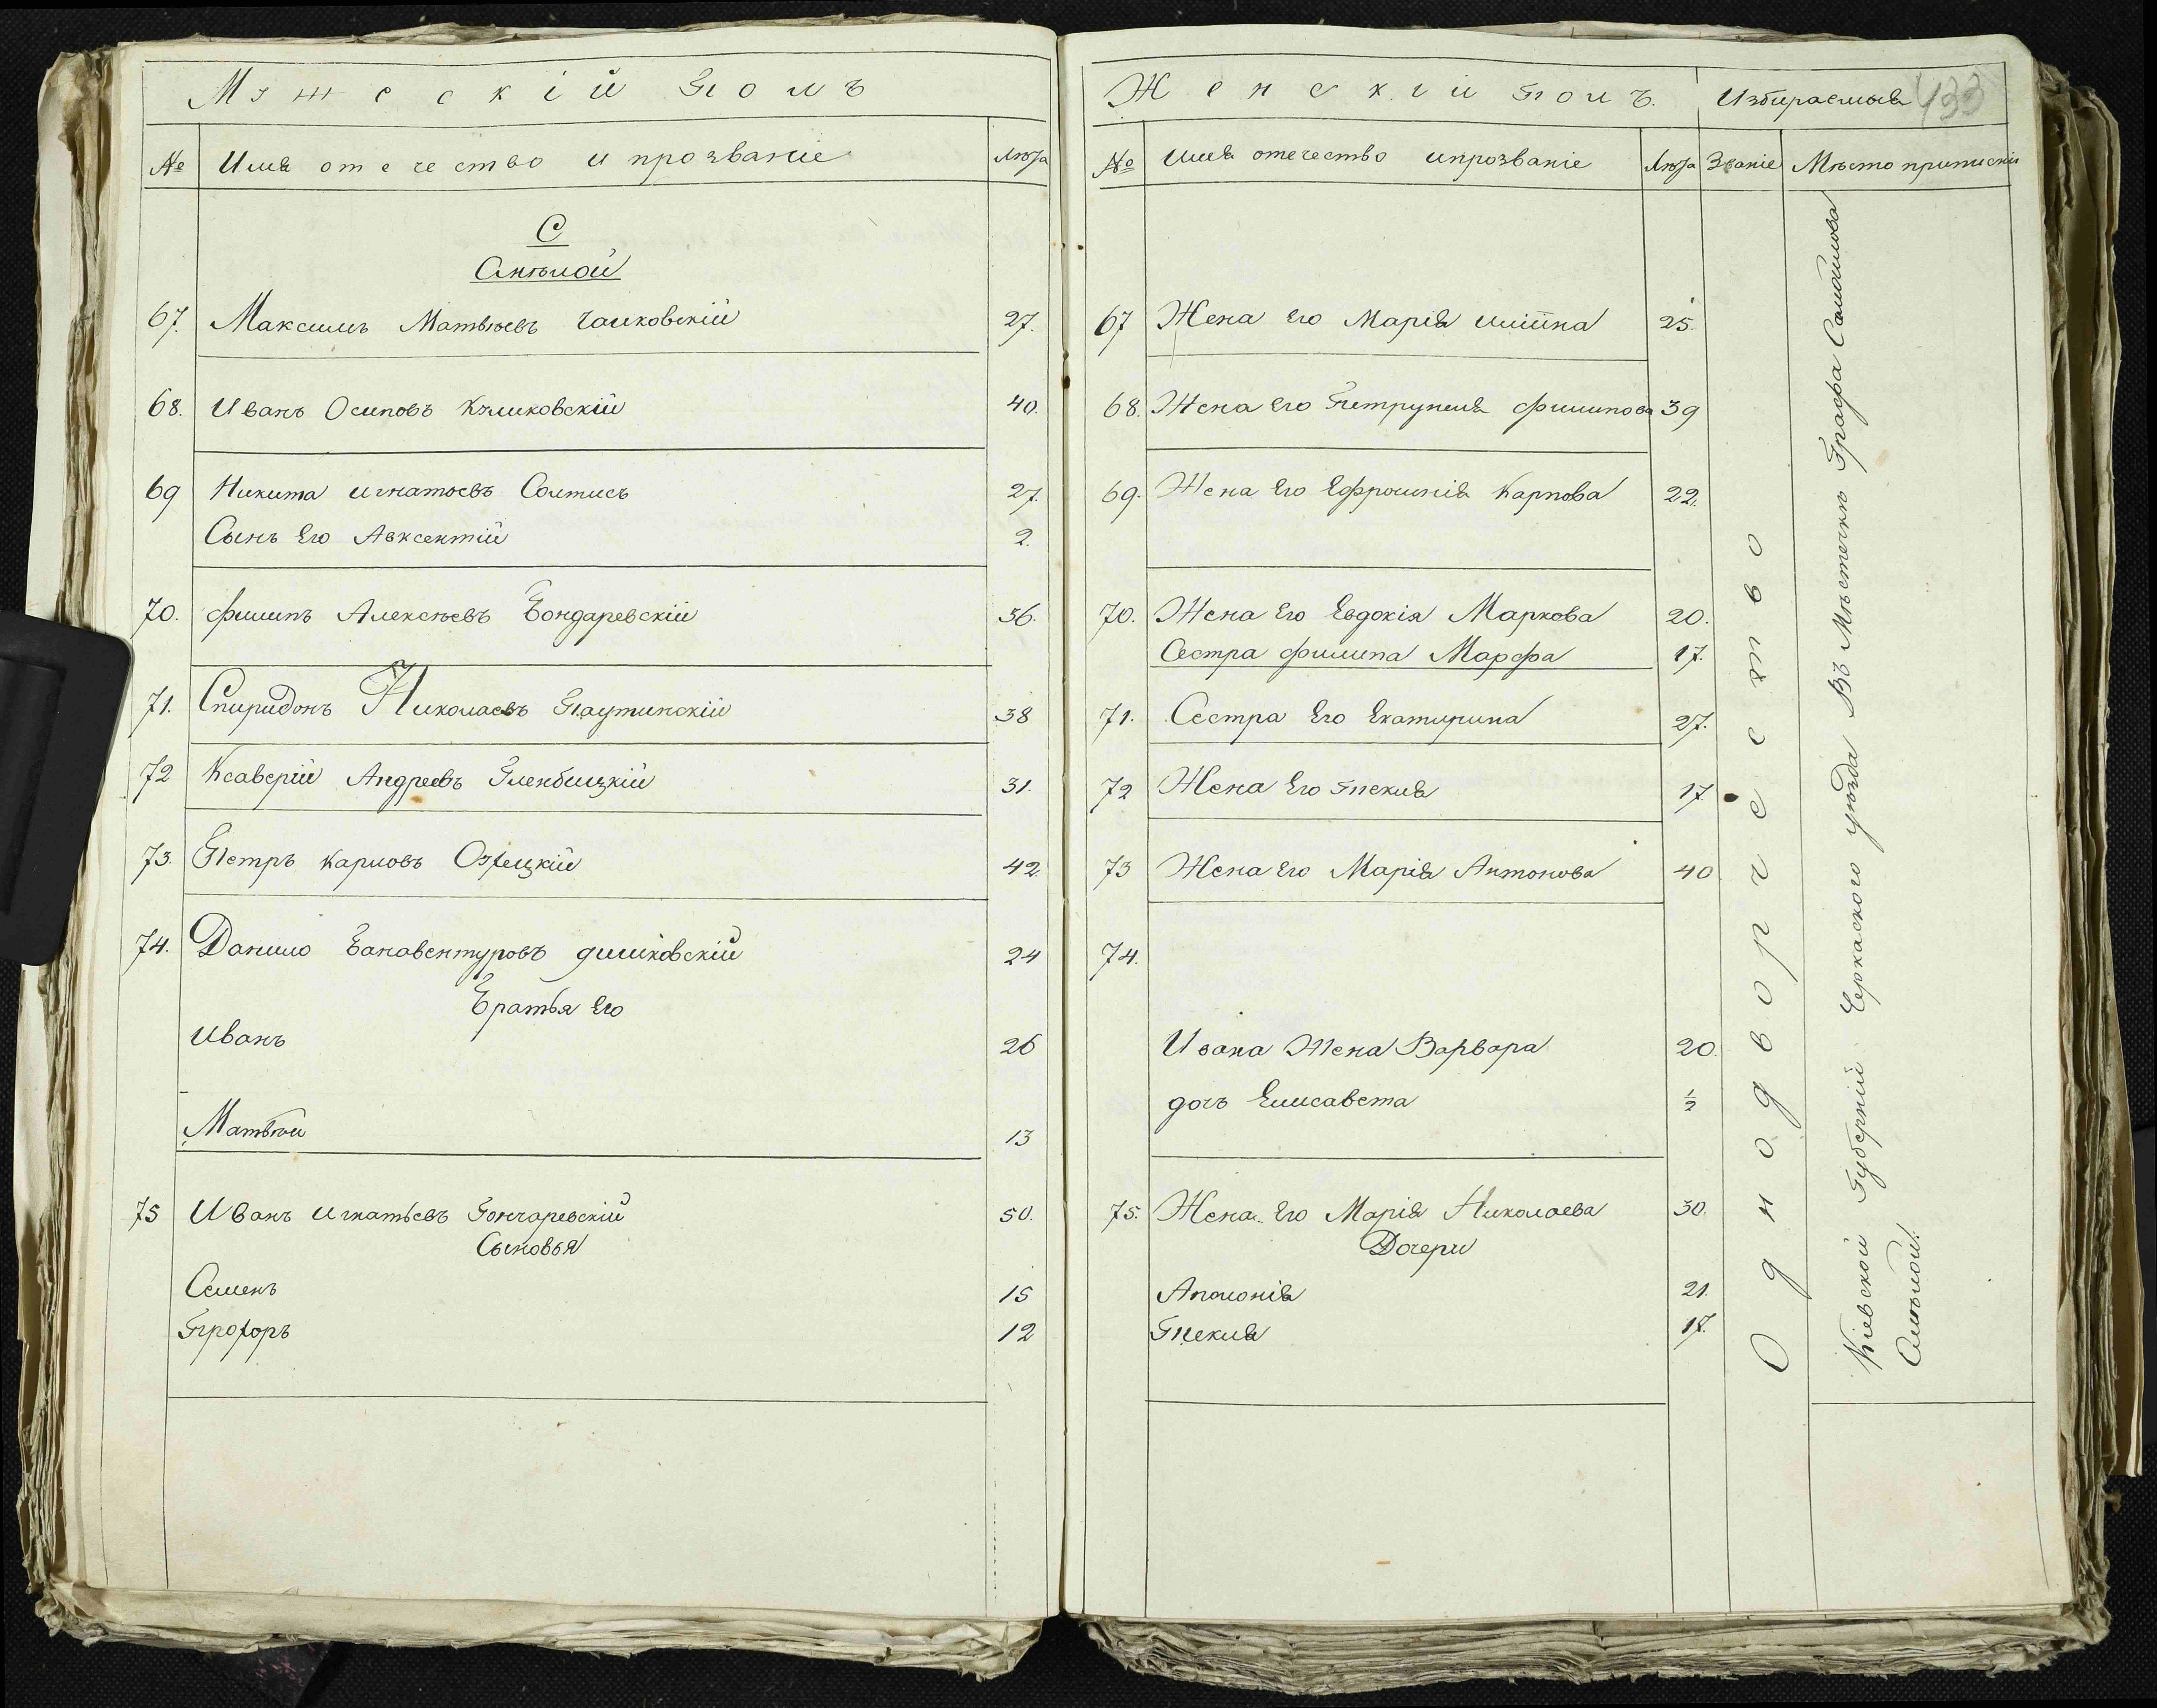 Мужескій полъ
№ Имя отечество и прозваніе Лѣта
С
Смѣлой
67. Максимъ Матвѣевъ Чайковскій 27.
68. Иванъ Осиповъ Климковскій 40.
69 Никита игнатьевъ Солтисъ 27.
Сынъ Его Авксентій 2.
70. филипъ Алексѣевъ Бондаревскій 36.
71. Спиридонъ Николаевъ Паутинскій 38
72 Ксаверій Андреевъ Глембицкій 31.
73. Петръ карповъ 42
74. Данило Банавентуровъ 24
Братья Его
Иванъ 26
Матвѣй 13
75 Иванъ игнатьевъ Гончаревскій 50.
Сыновья
Семенъ 15
Прохоръ 12
Женскій полъ. Избираемыя 433
№ Имя отечество и прозваніе Лѣта Званіе Мѣсто приписки
67 Жена Его Марія 25.
68. Жена Его Петрунеля филипова 39
69. Жена Его Ефросинія Карпова 22.
70. Жена Его Евдокія Маркова 20.
Сестра филипа Марфа 17.
71. Сестра Его Екатирина 27.
72 Жена Его Текля 17.
73 Жена Его Марія Антонова 40
74.
Ивана Жена Варвара 20.
дочь Елисавета ½
75. Жена Его Марія Николаева 30.
Дочери
Аполонія 21.
Текля 17.
Однодворчество
Кіевской Губерніи Черкаского уѣзда Въ Мѣстечкѣ Графа Самойлова
Смѣлой.